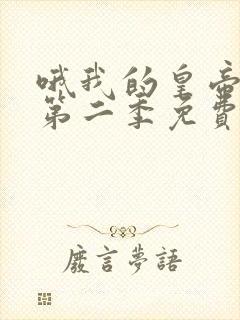 哦我的皇帝
第二季免費
廢言夢語